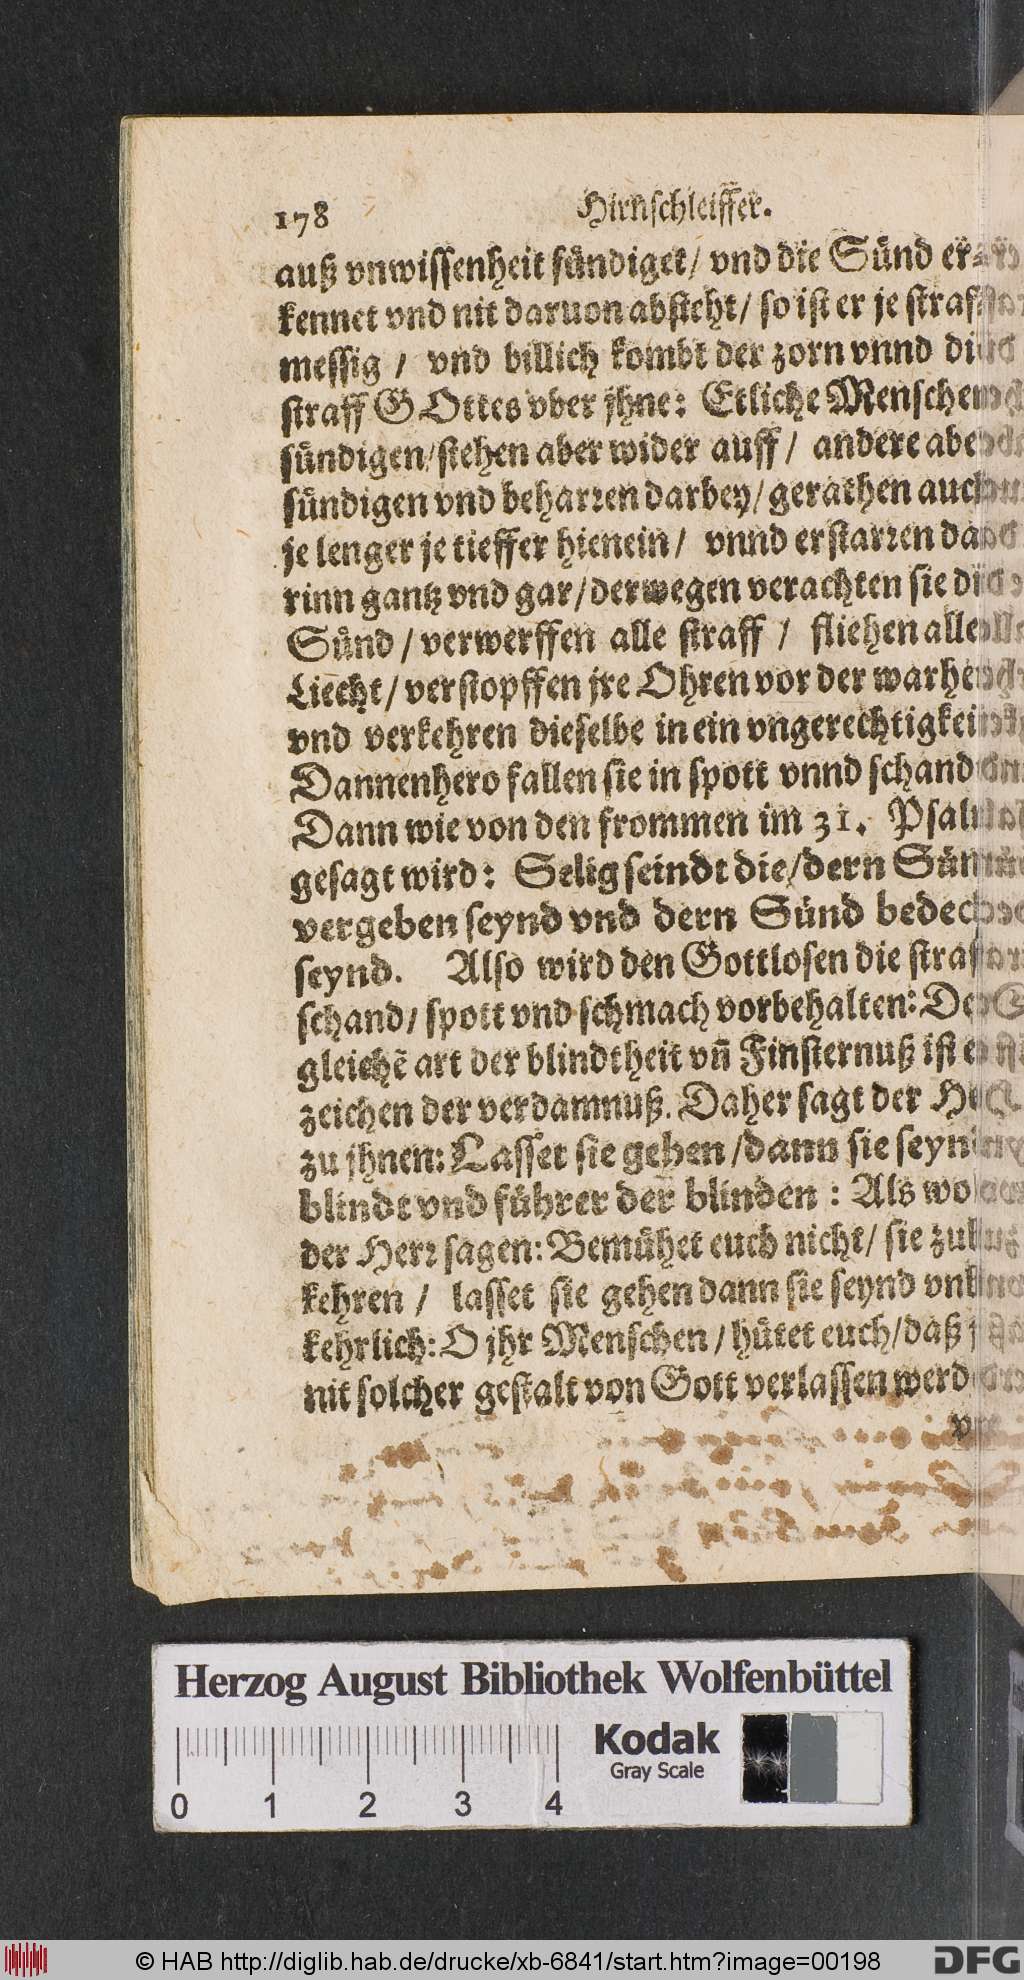 178 Hirnschleiffer.
auß vnwissenheit sündiget/ vnd die Sünd er⸗
kennet vnd nit daruon absteht/ so ist er je straf⸗
messig / vnd billich kombt der zorn vnnd die
straff GOttes vber jhne: Etliche Menschen
sündigen/stehen aber wider auff / andere aber
sündigen vnd beharren darbey/ gerathen auch
je lenger je tieffer hienein / vnnd erstarren da⸗
rinn gantz vnd gar/derwegen verachten sie die
Sünd / verwerffen alle straff / fliehen alle
Liecht/ verstopffen jre Ohren vor der warheit
vnd verkehren dieselbe in ein vngerechtigkeit
Dannenhero fallen sie in spott vnnd schand
Dann wie von den frommen im 31. Psalm
gesagt wird: Selig seindt die/dern Sünd
vergeben seynd vnd dern Sünd bedeckt
seynd. Also wird den Gottlosen die straff
schand/ spott vnd schmach vorbehalten: Der
gleichē art der blindtheit vñ Finsternuß ist ein
zeichen der verdamnuß. Daher sagt der Herr
zu jhnen: Lasset sie gehen /dann sie seynd
blindt vnd führer der blinden : Als wolt
der Herr sagen: Bemühet euch nicht/ sie zu be
kehren / lasset sie gehen dann sie seynd vnbe
kehrlich: O jhr Menschen / hütet euch/daß jhr
nit solcher gestalt von Gott verlassen werdet
Herzog August Bibliothek Wolfenbüttel
Kodak
Gray Scale
0 1 2 3 4
© HAB http://diglib.hab.de/drucke/xb-6841/start.htm?image=00198 DFG